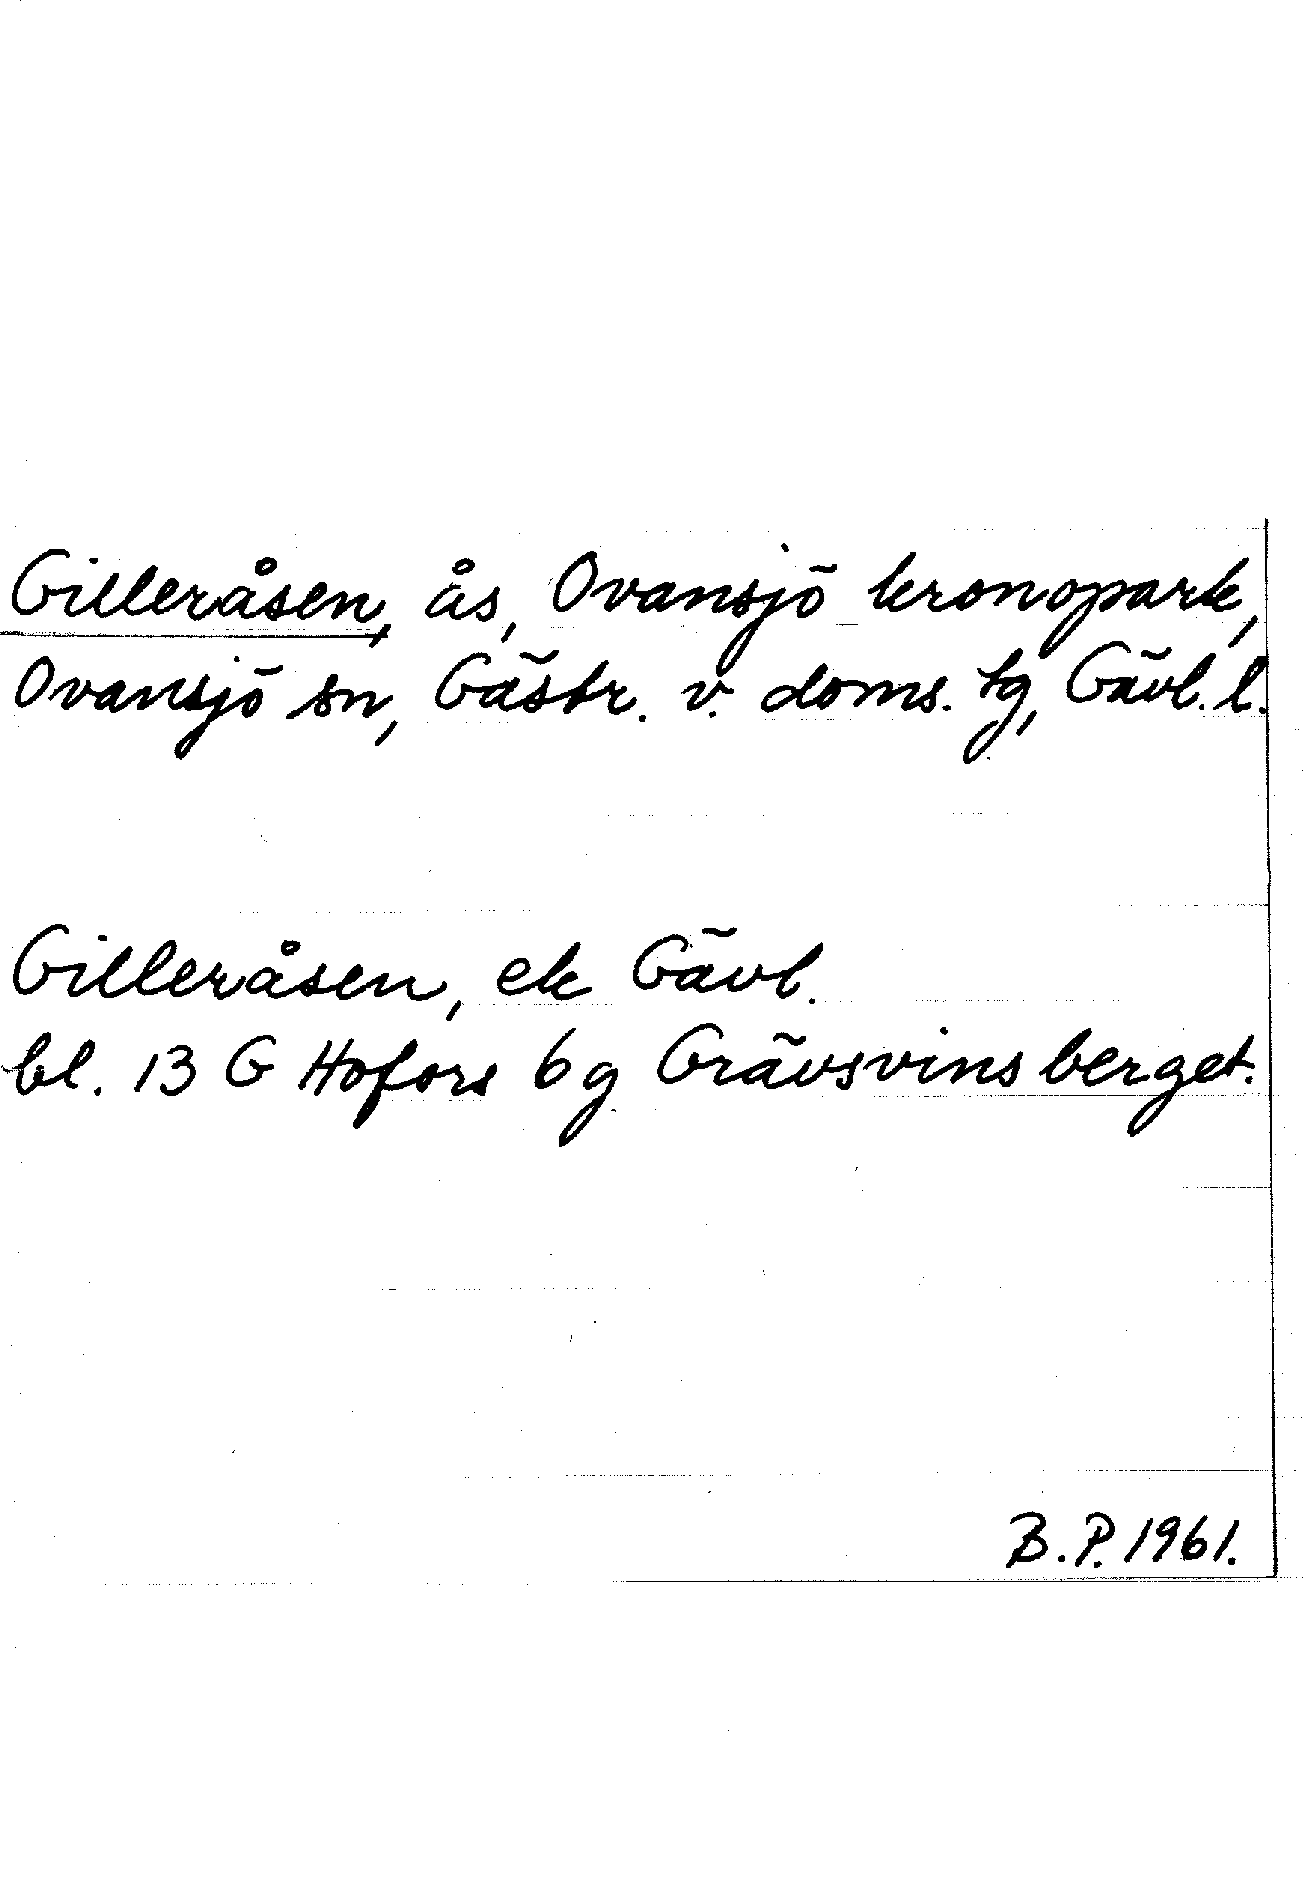 Gilleråsen, ås, Ovansjö kronopark,
Ovansjö sn, Gästr. v. doms. tg, Gävl. l.
Gilleråsen, ek Gävl.
bl. 13 G Hofors 6 g Grävsvinsberget.
B.P. 1961.